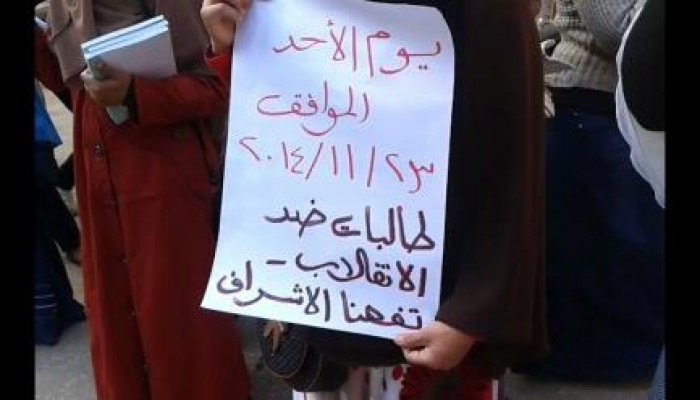 يوم الأحد
الموافق
٢٠١٤/١١/٢٣
طالبات ضد
الانقلاب -
تفهنا الاشراف